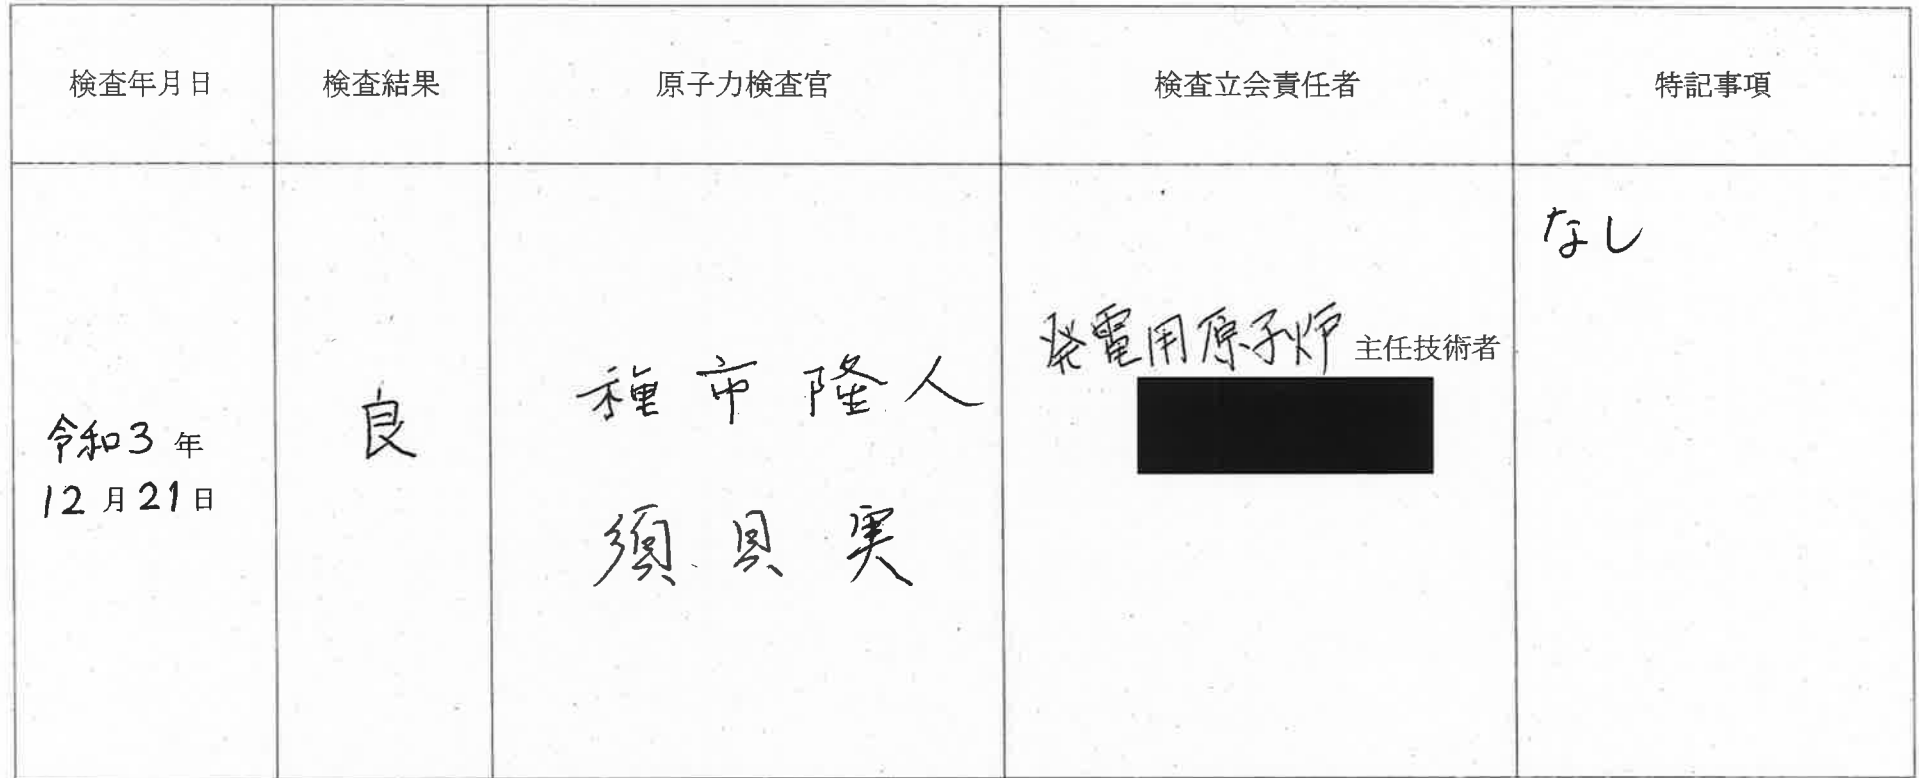 検査年月日
検査結果
原子力検査官
検査立会責任者
特記事項
令和3年
12月21日
良
種市隆人
須貝実
発電用原子炉主任技術者
なし